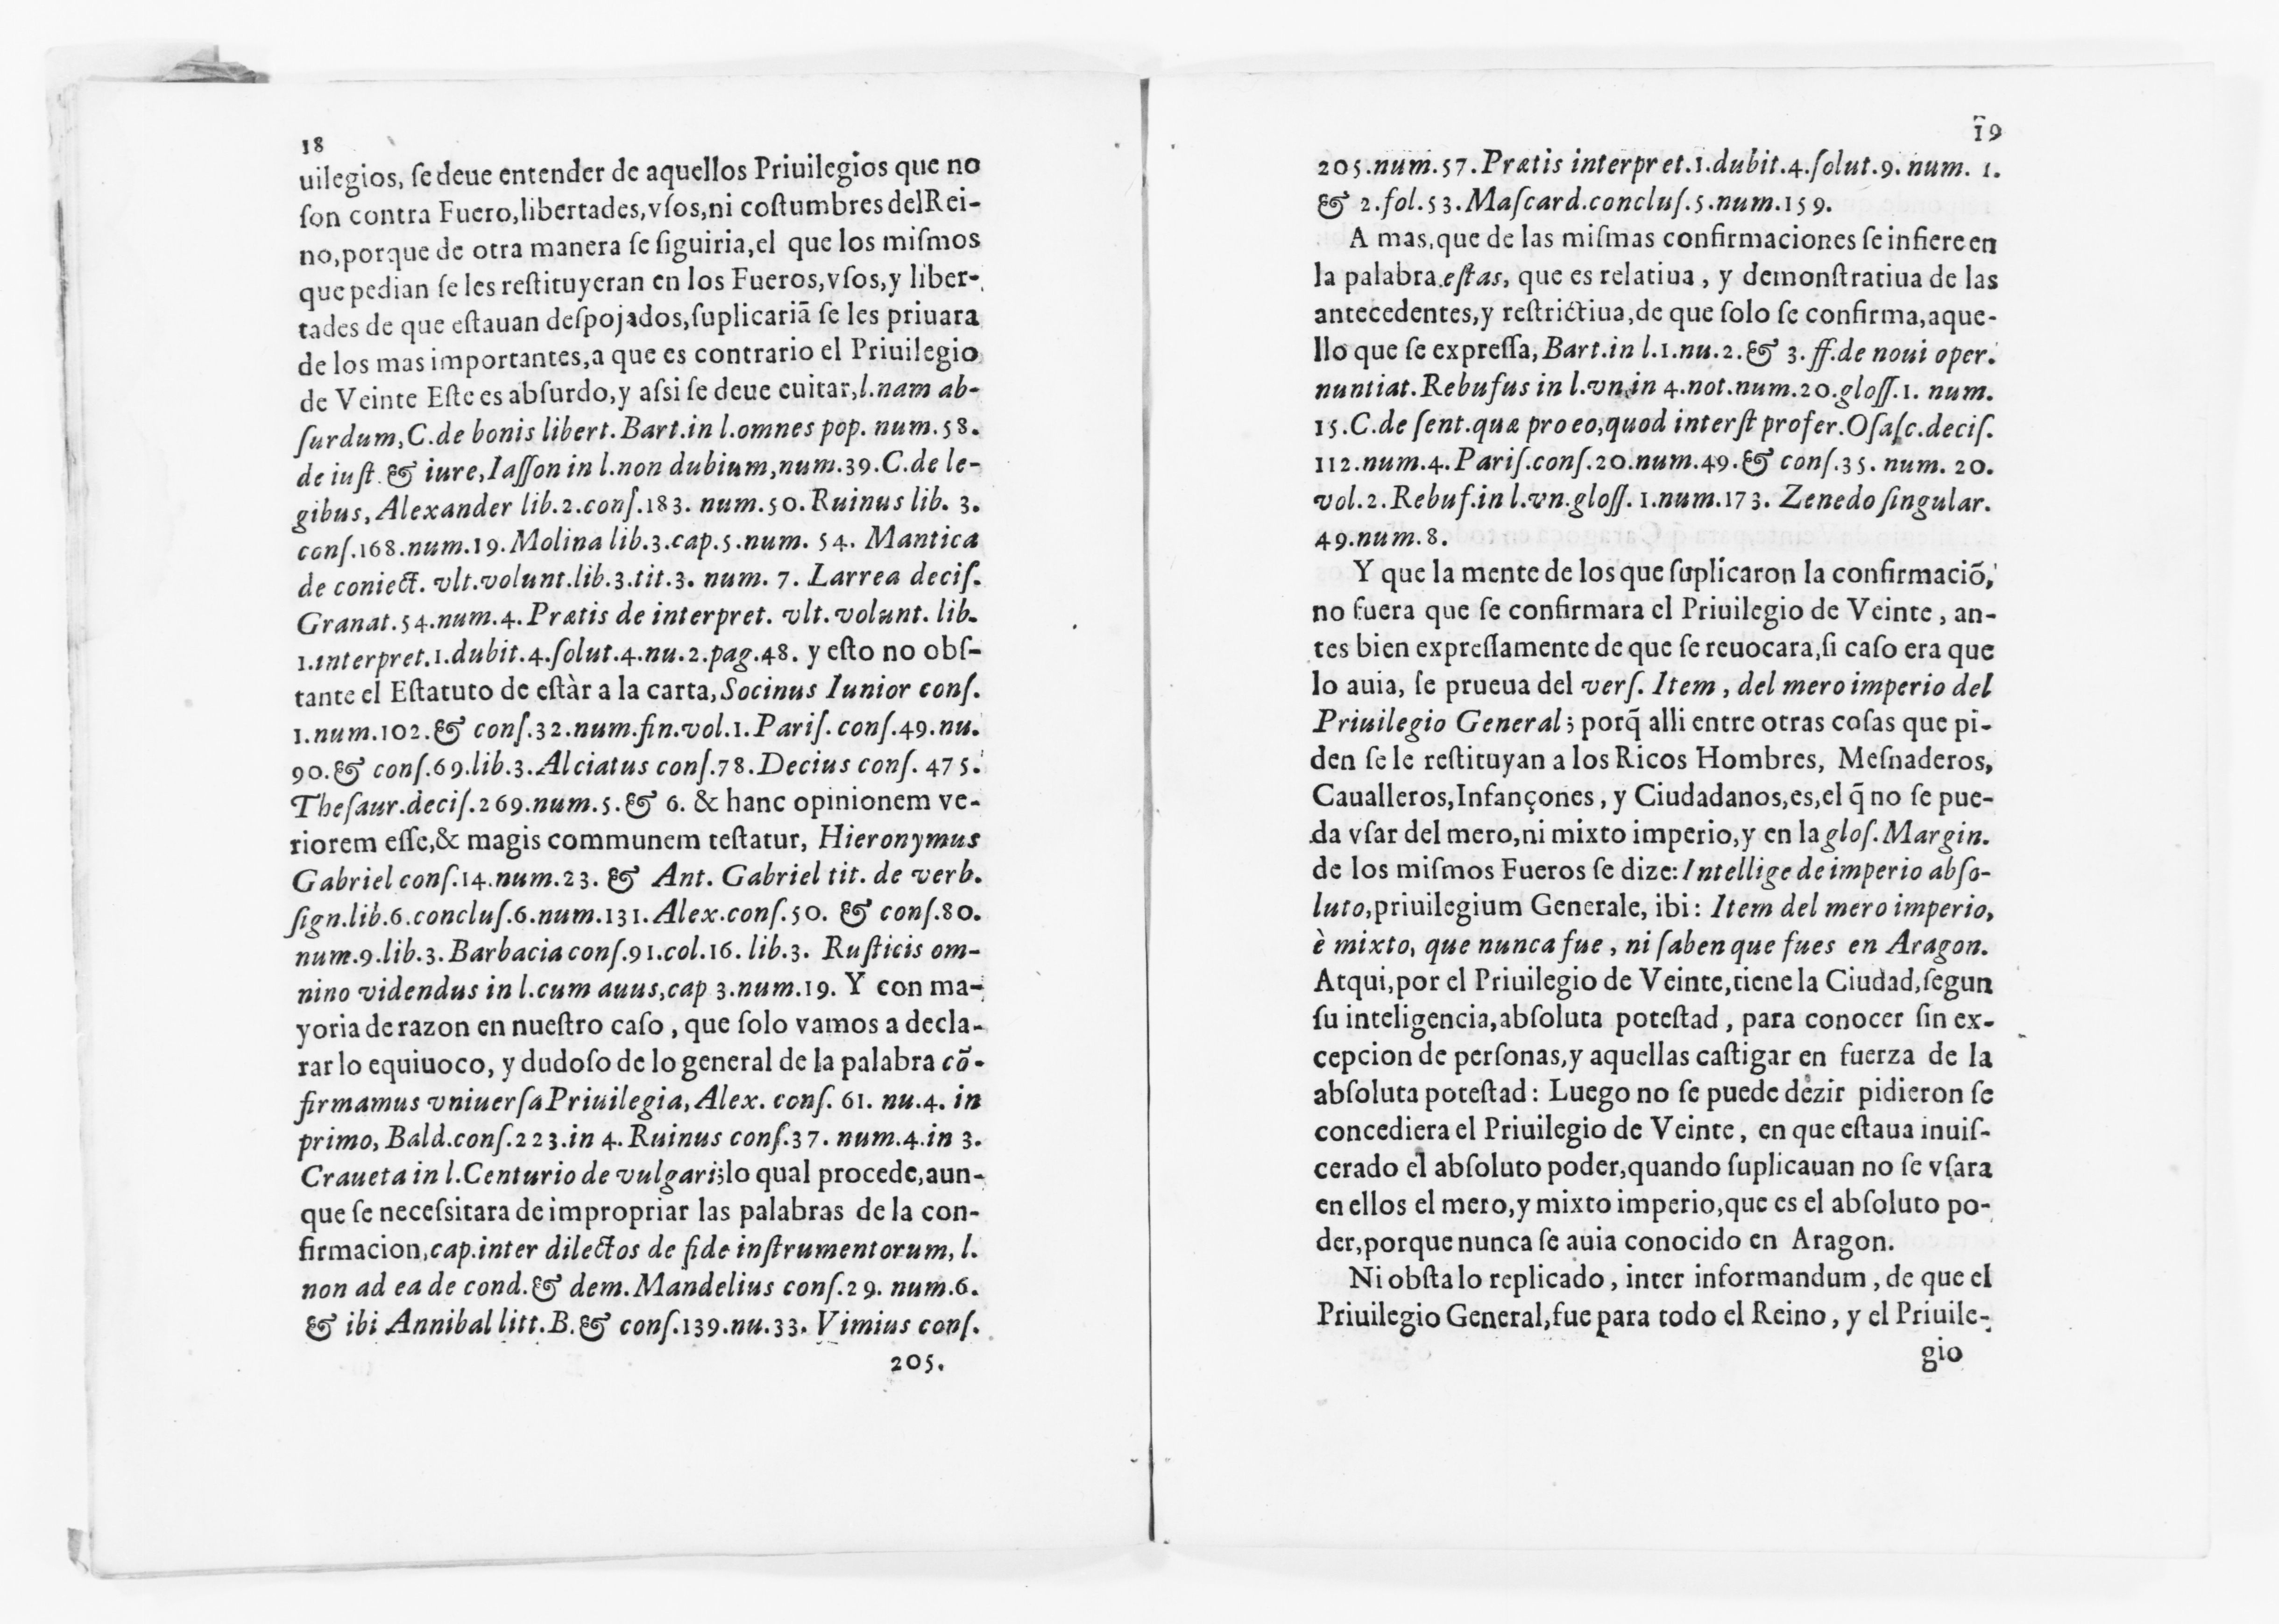 18
uilegios, ſe deue entender de aquellos Priuilegios que no
ſon contra Fuero, libertades, vſos, ni coſtumbres del Rei-
no, porque de otra manera ſe ſiguiria, el que los miſmos
que pedian ſe les reſtituyeran en los Fueros, vſos, y liber-
tades de que eſtauan deſpojados, ſuplicariā ſe les priuara
de los mas importantes, a que es contrario el Priuilegio
de Veinte Eſte es abſurdo, y aſsi ſe deue euitar, l. nam ab-
ſurdum, C. de bonis libert. Bart. in l. omnes pop. num. 58.
de iuſt. & iure, Iaſſon in l. non dubium, num. 39. C. de le-
gibus, Alexander lib. 2. conſ. 183. num. 50. Ruinus lib. 3.
conſ. 168. num. 19. Molina lib. 3. cap. 5. num. 54. Mantica
de coniect. vlt. volunt. lib. 3. tit. 3. num. 7. Larrea deciſ.
Granat. 54. num. 4. Prætis de interpret. vlt. volunt. lib.
1. interpret. 1. dubit. 4. ſolut. 4. nu. 2. pag. 48. y eſto no obſ-
tante el Eſtatuto de eſtàr a la carta, Socinus Iunior conſ.
1. num. 102. & conſ. 32. num. fin. vol. 1. Pariſ. conſ. 49. nu.
90. & conſ. 69. lib. 3. Alciatus conſ. 78. Decius conſ. 475.
Theſaur. deciſ. 269. num. 5. & 6. & hanc opinionem ve-
riorem eſſe, & magis communem teſtatur, Hieronymus
Gabriel conſ. 14. num. 23. & Ant. Gabriel tit. de verb.
ſign. lib. 6. concluſ. 6. num. 131. Alex. conſ. 50. & conſ. 80.
num. 9. lib. 3. Barbacia conſ. 91. col. 16. lib. 3. Ruſticis om-
nino videndus in l. cum auus, cap 3. num. 19. Y con ma-
yoria de razon en nueſtro caſo, que ſolo vamos a decla-
rar lo equiuoco, y dudoſo de lo general de la palabra cō-
firmamus vniuerſa Priuilegia, Alex. conſ. 61. nu. 4. in
primo, Bald. conſ. 223. in 4. Ruinus conſ. 37. num. 4. in 3.
Craueta in l. Centurio de vulgari; lo qual procede, aun-
que ſe neceſsitara de impropriar las palabras de la con-
firmacion, cap. inter dilectos de fide inſtrumentorum, l.
non ad ea de cond. & dem. Mandelius conſ. 29. num. 6.
& ibi Annibal litt. B. & conſ. 139. nu. 33. Vimius conſ.
205.
19
205. num. 57. Prætis interpret. 1. dubit. 4. ſolut. 9. num. 1.
& 2. fol. 53. Maſcard. concluſ. 5. num. 159.
A mas, que de las miſmas confirmaciones ſe infiere en
la palabra eſtas, que es relatiua, y demonſtratiua de las
antecedentes, y reſtrictiua, de que ſolo ſe confirma, aque-
llo que ſe expreſſa, Bart. in l. 1. nu. 2. & 3. ff. de noui oper.
nuntiat. Rebufus in l. vn. in 4. not. num. 20. gloſſ. 1. num.
15. C. de ſent. quæ pro eo, quod interſt profer. Oſaſc. deciſ.
112. num. 4. Pariſ. conſ. 20. num. 49. & conſ. 35. num. 20.
vol. 2. Rebuf. in l. vn. gloſſ. 1. num. 173. Zenedo ſingular.
49. num. 8.
Y que la mente de los que ſuplicaron la confirmaciō,
no fuera que ſe confirmara el Priuilegio de Veinte, an-
tes bien expreſſamente de que ſe reuocara, ſi caſo era que
lo auia, ſe prueua del verſ. Item, del mero imperio del
Priuilegio General; porq̃ alli entre otras coſas que pi-
den ſe le reſtituyan a los Ricos Hombres, Meſnaderos,
Caualleros, Infançones, y Ciudadanos, es, el q̃ no ſe pue-
da vſar del mero, ni mixto imperio, y en la gloſ. Margin.
de los miſmos Fueros ſe dize: Intellige de imperio abſo-
luto, priuilegium Generale, ibi: Item del mero imperio,
è mixto, que nunca fue, ni ſaben que fues en Aragon.
Atqui, por el Priuilegio de Veinte, tiene la Ciudad, ſegun
ſu inteligencia, abſoluta poteſtad, para conocer ſin ex-
cepcion de perſonas, y aquellas caſtigar en fuerza de la
abſoluta poteſtad: Luego no ſe puede dezir pidieron ſe
concediera el Priuilegio de Veinte, en que eſtaua inuiſ-
cerado el abſoluto poder, quando ſuplicauan no ſe vſara
en ellos el mero, y mixto imperio, que es el abſoluto po-
der, porque nunca ſe auia conocido en Aragon.
Ni obſta lo replicado, inter informandum, de que el
Priuilegio General, fue para todo el Reino, y el Priuile-
gio